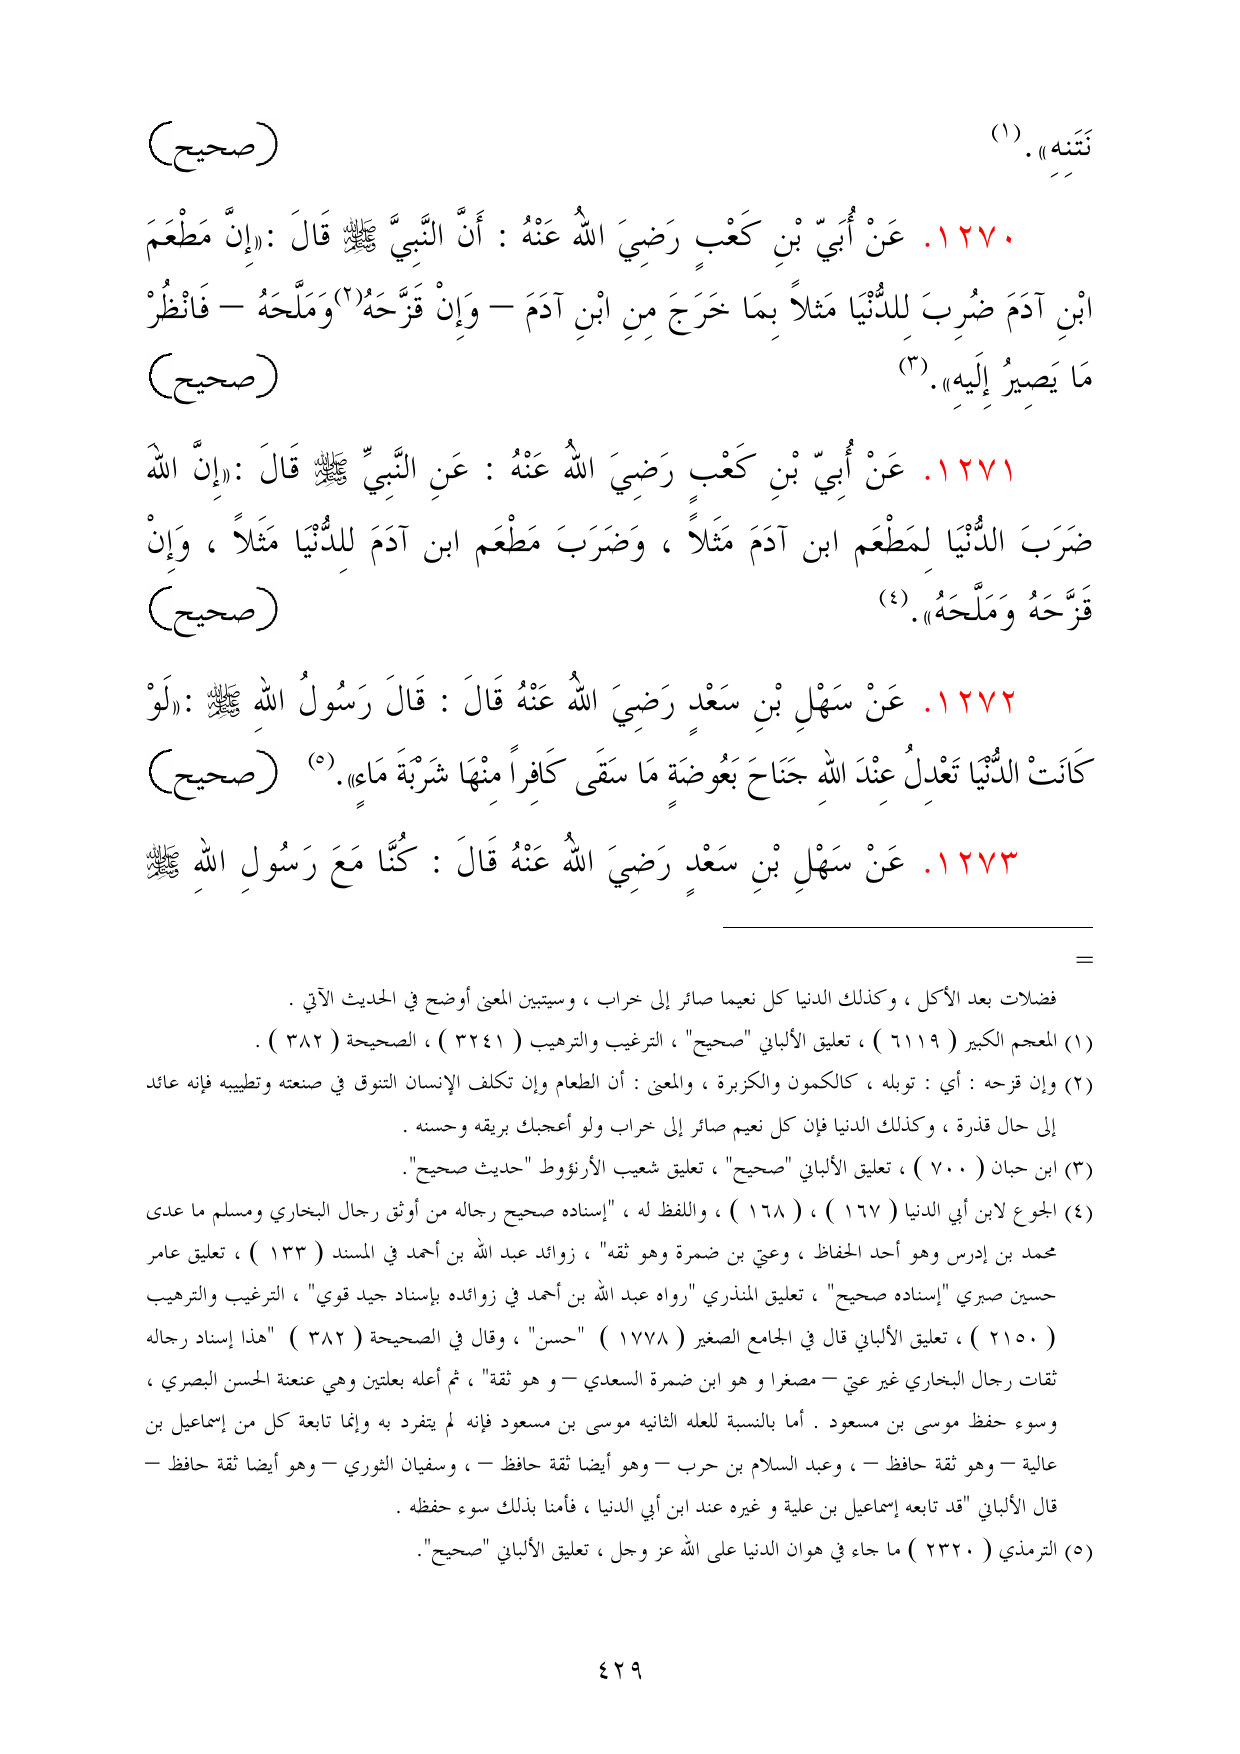 نَتَنِهِ». (١) (صحيح)
١٢٧٠. عَنْ أُبَيّ بْنِ كَعْبٍ رَضِيَ اللهُ عَنْهُ : أَنَّ النَّبِيَّ ﷺ قَالَ :«إِنَّ مَطْعَمَ
ابْنِ آدَمَ ضُرِبَ لِلدُّنْيَا مَثلاً بِمَا خَرَجَ مِنِ ابْنِ آدَمَ – وَإِنْ قَزَّحَهُ(٢)وَمَلَّحَهُ – فَانْظُرْ
مَا يَصِيرُ إِلَيهِ».(٣) (صحيح)
١٢٧١. عَنْ أُبِيّ بْنِ كَعْبٍ رَضِيَ اللهُ عَنْهُ : عَنِ النَّبِيِّ ﷺ قَالَ :«إِنَّ اللهَ
ضَرَبَ الدُّنْيَا لِمَطْعَم ابن آدَمَ مَثَلاً ، وَضَرَبَ مَطْعَم ابن آدَمَ لِلدُّنْيَا مَثَلاً ، وَإِنْ
قَزَّحَهُ وَمَلَّحَهُ».(٤) (صحيح)
١٢٧٢. عَنْ سَهْلِ بْنِ سَعْدٍ رَضِيَ اللهُ عَنْهُ قَالَ : قَالَ رَسُولُ اللهِ ﷺ :«لَوْ
كَانَتْ الدُّنْيَا تَعْدِلُ عِنْدَ اللهِ جَنَاحَ بَعُوضَةٍ مَا سَقَى كَافِراً مِنْهَا شَرْبَةَ مَاءٍ».(٥) (صحيح)
١٢٧٣. عَنْ سَهْلِ بْنِ سَعْدٍ رَضِيَ اللهُ عَنْهُ قَالَ : كُنَّا مَعَ رَسُولِ اللهِ ﷺ
=
فضلات بعد الأكل ، وكذلك الدنيا كل نعيما صائر إلى خراب ، وسيتبين المعنى أوضح في الحديث الآتي .
(١) المعجم الكبير ( ٦١١٩ ) ، تعليق الألباني "صحيح" ، الترغيب والترهيب ( ٣٢٤١ ) ، الصحيحة ( ٣٨٢ ) .
(٢) وإن قزحه : أي : توبله ، كالكمون والكزبرة ، والمعنى : أن الطعام وإن تكلف الإنسان التنوق في صنعته وتطييبه فإنه عائد
إلى حال قذرة ، وكذلك الدنيا فإن كل نعيم صائر إلى خراب ولو أعجبك بريقه وحسنه .
(٣) ابن حبان ( ٧٠٠ ) ، تعليق الألباني "صحيح" ، تعليق شعيب الأرنؤوط "حديث صحيح".
(٤) الجوع لابن أبي الدنيا ( ١٦٧ ) ، ( ١٦٨ ) ، واللفظ له ، "إسناده صحيح رجاله من أوثق رجال البخاري ومسلم ما عدى
محمد بن إدرس وهو أحد الحفاظ ، وعتي بن ضمرة وهو ثقه" ، زوائد عبد الله بن أحمد في المسند ( ١٣٣ ) ، تعليق عامر
حسين صبري "إسناده صحيح" ، تعليق المنذري "رواه عبد الله بن أحمد في زوائده بإسناد جيد قوي" ، الترغيب والترهيب
( ٢١٥٠ ) ، تعليق الألباني قال في الجامع الصغير ( ١٧٧٨ ) "حسن" ، وقال في الصحيحة ( ٣٨٢ ) "هذا إسناد رجاله
ثقات رجال البخاري غير عتي – مصغرا و هو ابن ضمرة السعدي – و هو ثقة" ، ثم أعله بعلتين وهي عنعنة الحسن البصري ،
وسوء حفظ موسى بن مسعود . أما بالنسبة للعله الثانيه موسى بن مسعود فإنه لم يتفرد به وإنما تابعة كل من إسماعيل بن
عالية – وهو ثقة حافظ – ، وعبد السلام بن حرب – وهو أيضا ثقة حافظ – ، وسفيان الثوري – وهو أيضا ثقة حافظ –
قال الألباني "قد تابعه إسماعيل بن علية و غيره عند ابن أبي الدنيا ، فأمنا بذلك سوء حفظه .
(٥) الترمذي ( ٢٣٢٠ ) ما جاء في هوان الدنيا على الله عز وجل ، تعليق الألباني "صحيح".
٤٢٩